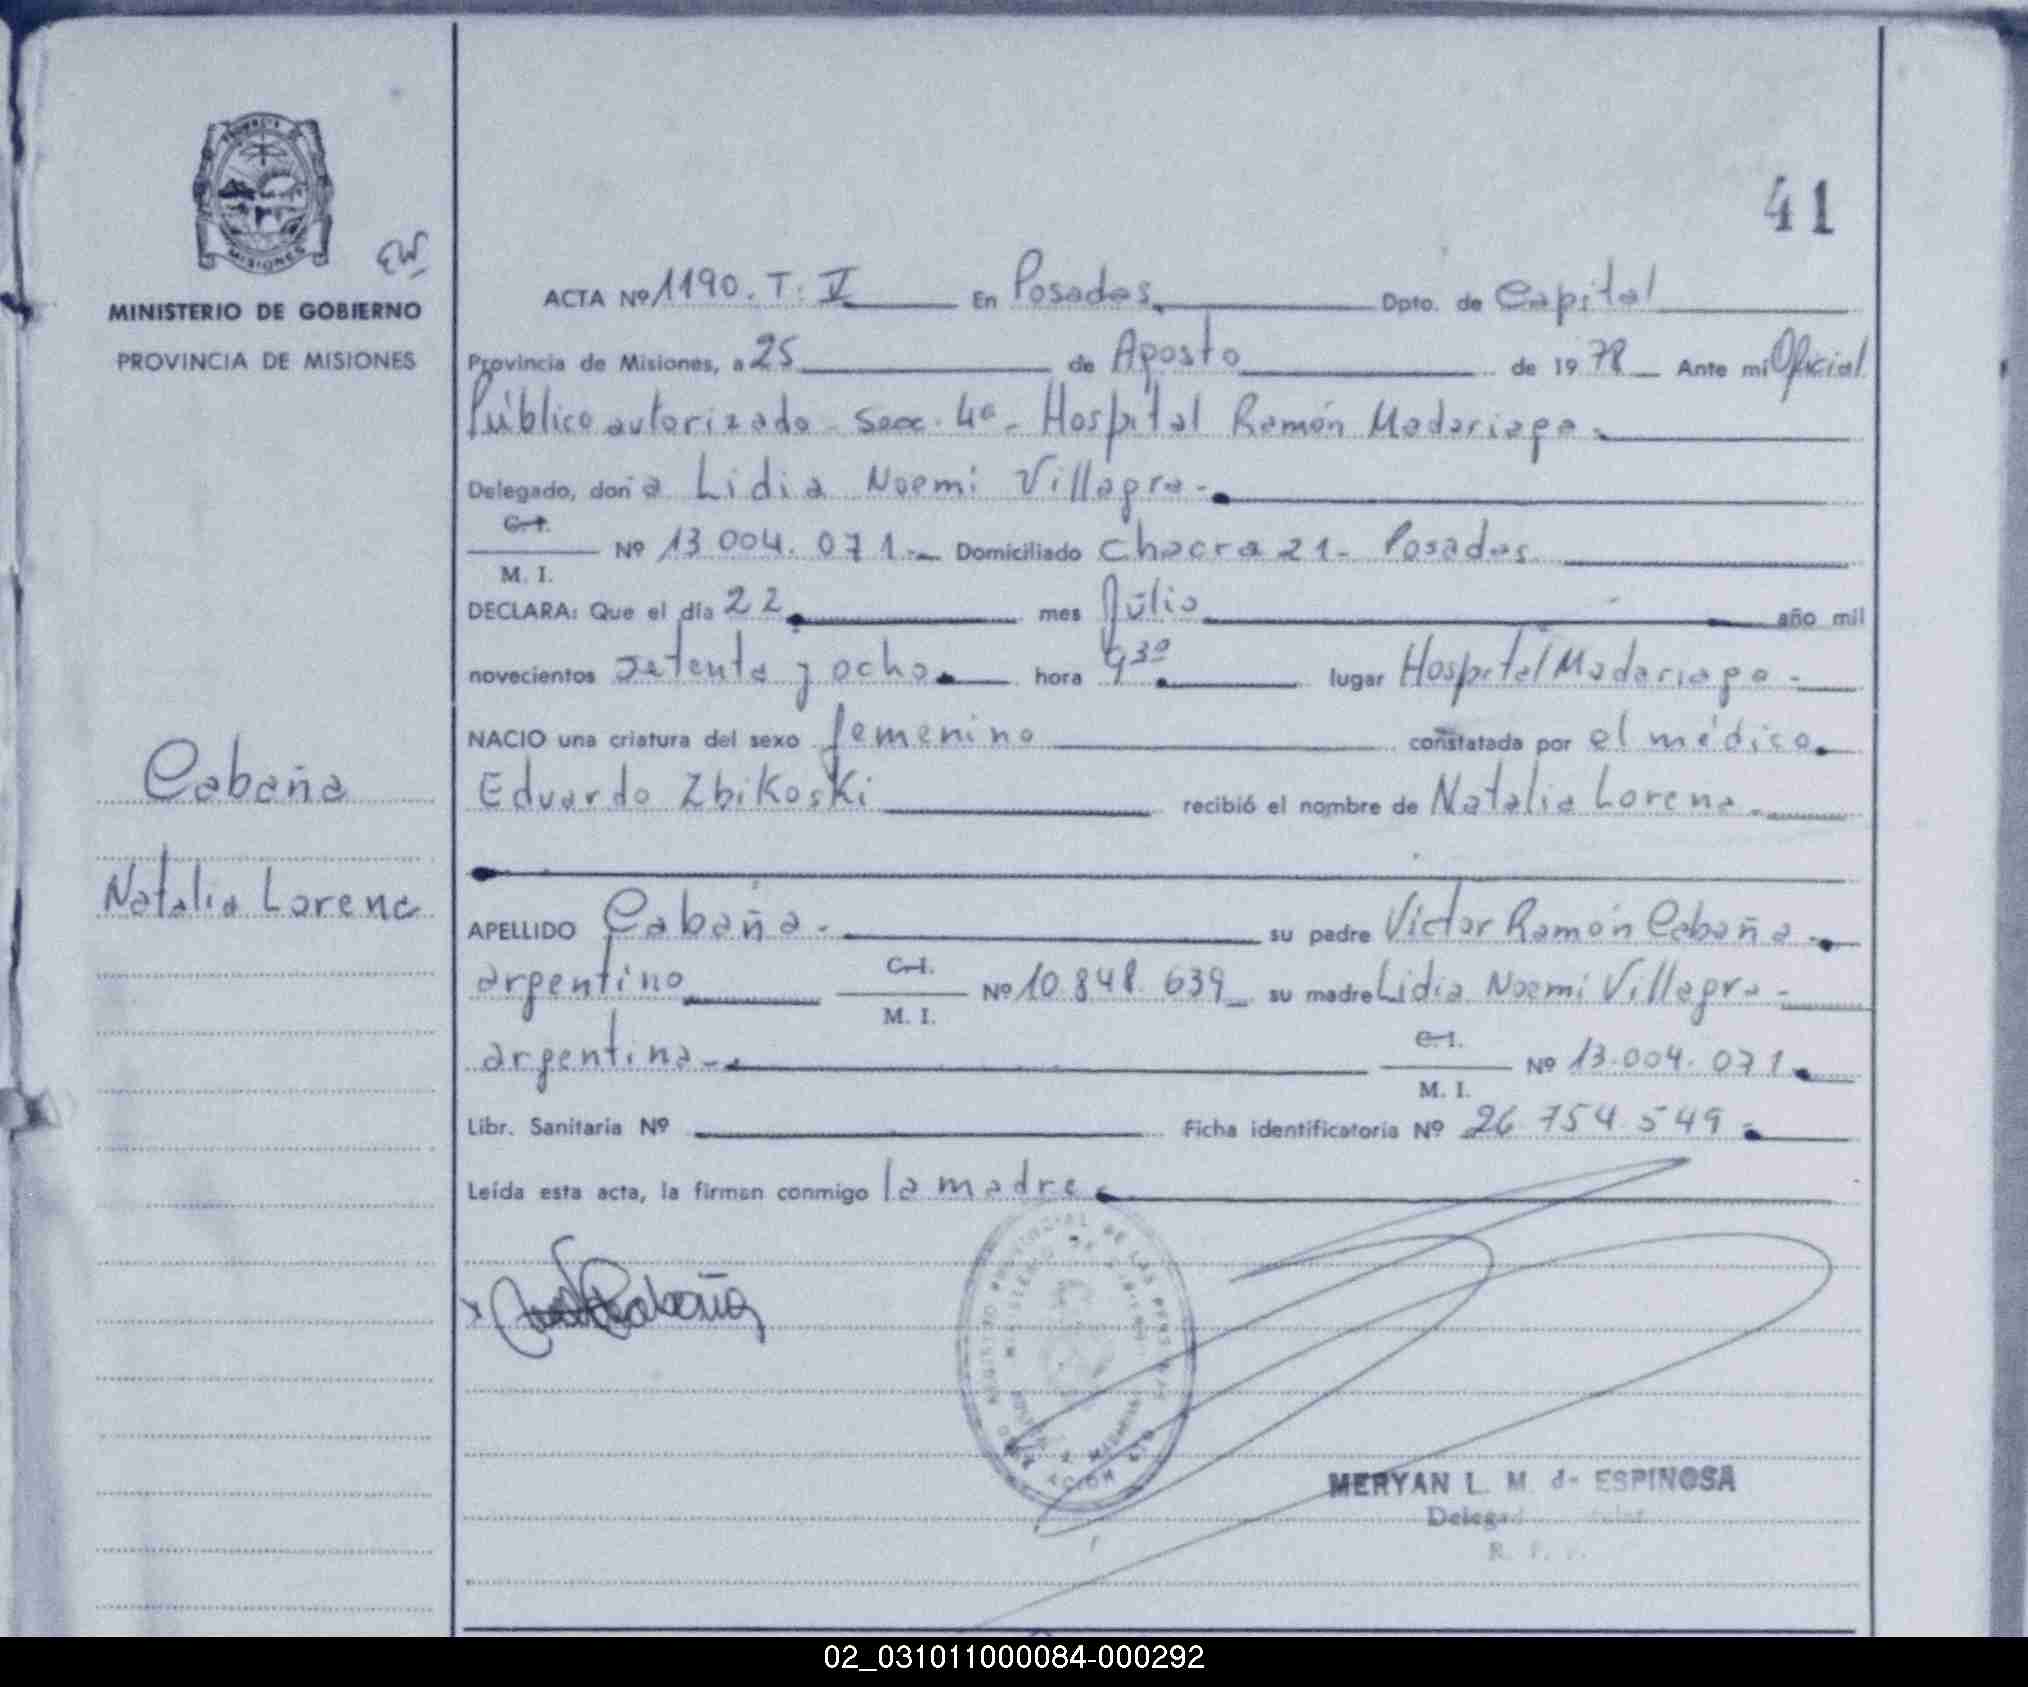 41
PROVINCIA DE
MISIONES
EW
MINISTERIO DE GOBIERNO
PROVINCIA DE MISIONES
Cabaña
Natalia Lorena
ACTA Nº 1190. T. V En Posadas, Dpto. de Capital
Provincia de Misiones, a 25 de Agosto de 1978 Ante mi Oficial
Público autorizado - Secc. 4ª - Hospital Ramón Madariaga.
Delegado, don a Lidia Noemi Villagra -
C. I.
M. I. Nº 13 004. 071. - Domiciliado Chacra 21 - Posadas
DECLARA: Que el día 22 mes Julio año mil
novecientos setenta y ocho hora 9 30 lugar Hospital Madariaga -
NACIO una criatura del sexo femenino constatada por el médico
Eduardo Zbikoski recibió el nombre de Natalia Lorena -
APELLIDO Cabaña - su padre Victor Ramón Cabaña -
argentino C. I. M. I. Nº 10.848. 639 su madre Lidia Noemi Villagra -
argentina - C. I. M. I. Nº 13.004. 071
Libr. Sanitaria Nº Ficha identificatoria Nº 26 754. 549
Leída esta acta, la firman conmigo la madre
Cabaña
MERYAN L. M. de ESPINOSA
02_031011000084-000292